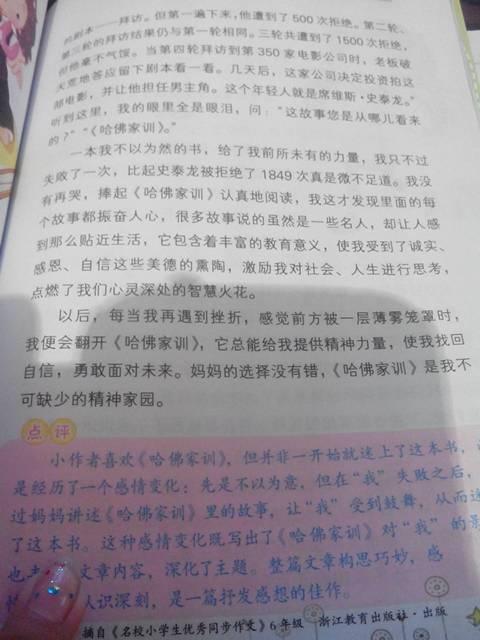 的剧本——拜访。但第一遍下来,他遭到了500次拒绝。第二轮、
第三轮的拜访结果仍与第一轮相同。三轮共遭到了1500次拒绝,
但他毫不气馁。当第四轮拜访到第350家电影公司时,老板破
天荒地答应留下剧本看一看。几天后,这家公司决定投资拍这
部电影,并让他担任男主角。这个年轻人就是席维斯·史泰龙。”
听到这里,我的眼里全是眼泪,问:“这故事您是从哪儿看来
的?”“《哈佛家训》。”
一本我不以为然的书,给了我前所未有的力量,我只不过
失败了一次,比起史泰龙被拒绝了1849次真是微不足道。我没
有再哭,捧起《哈佛家训》认真地阅读,我这才发现里面的每
个故事都振奋人心,很多故事说的虽然是一些名人,却让人感
到那么贴近生活,它包含着丰富的教育意义,使我受到了诚实、
感恩、自信这些美德的熏陶,激励我对社会、人生进行思考,
点燃了我们心灵深处的智慧火花。
以后,每当我再遇到挫折,感觉前方被一层薄雾笼罩时,
我便会翻开《哈佛家训》,它总能给我提供精神力量,使我找回
自信,勇敢面对未来。妈妈的选择没有错,《哈佛家训》是我不
可缺少的精神家园。
点评
小作者喜欢《哈佛家训》,但并非一开始就迷上了这本书,
是经历了一个感情变化:先是不以为意,但在“我”失败之后,
过妈妈讲述《哈佛家训》里的故事,让“我”受到鼓舞,从而
了这本书。这种感情变化既写出了《哈佛家训》对“我”的
也 文章内容,深化了主题。整篇文章构思巧妙,感
认识深刻,是一篇抒发感想的佳作。
摘自《名校小学生优秀同步作文》6年级 浙江教育出版社·出版